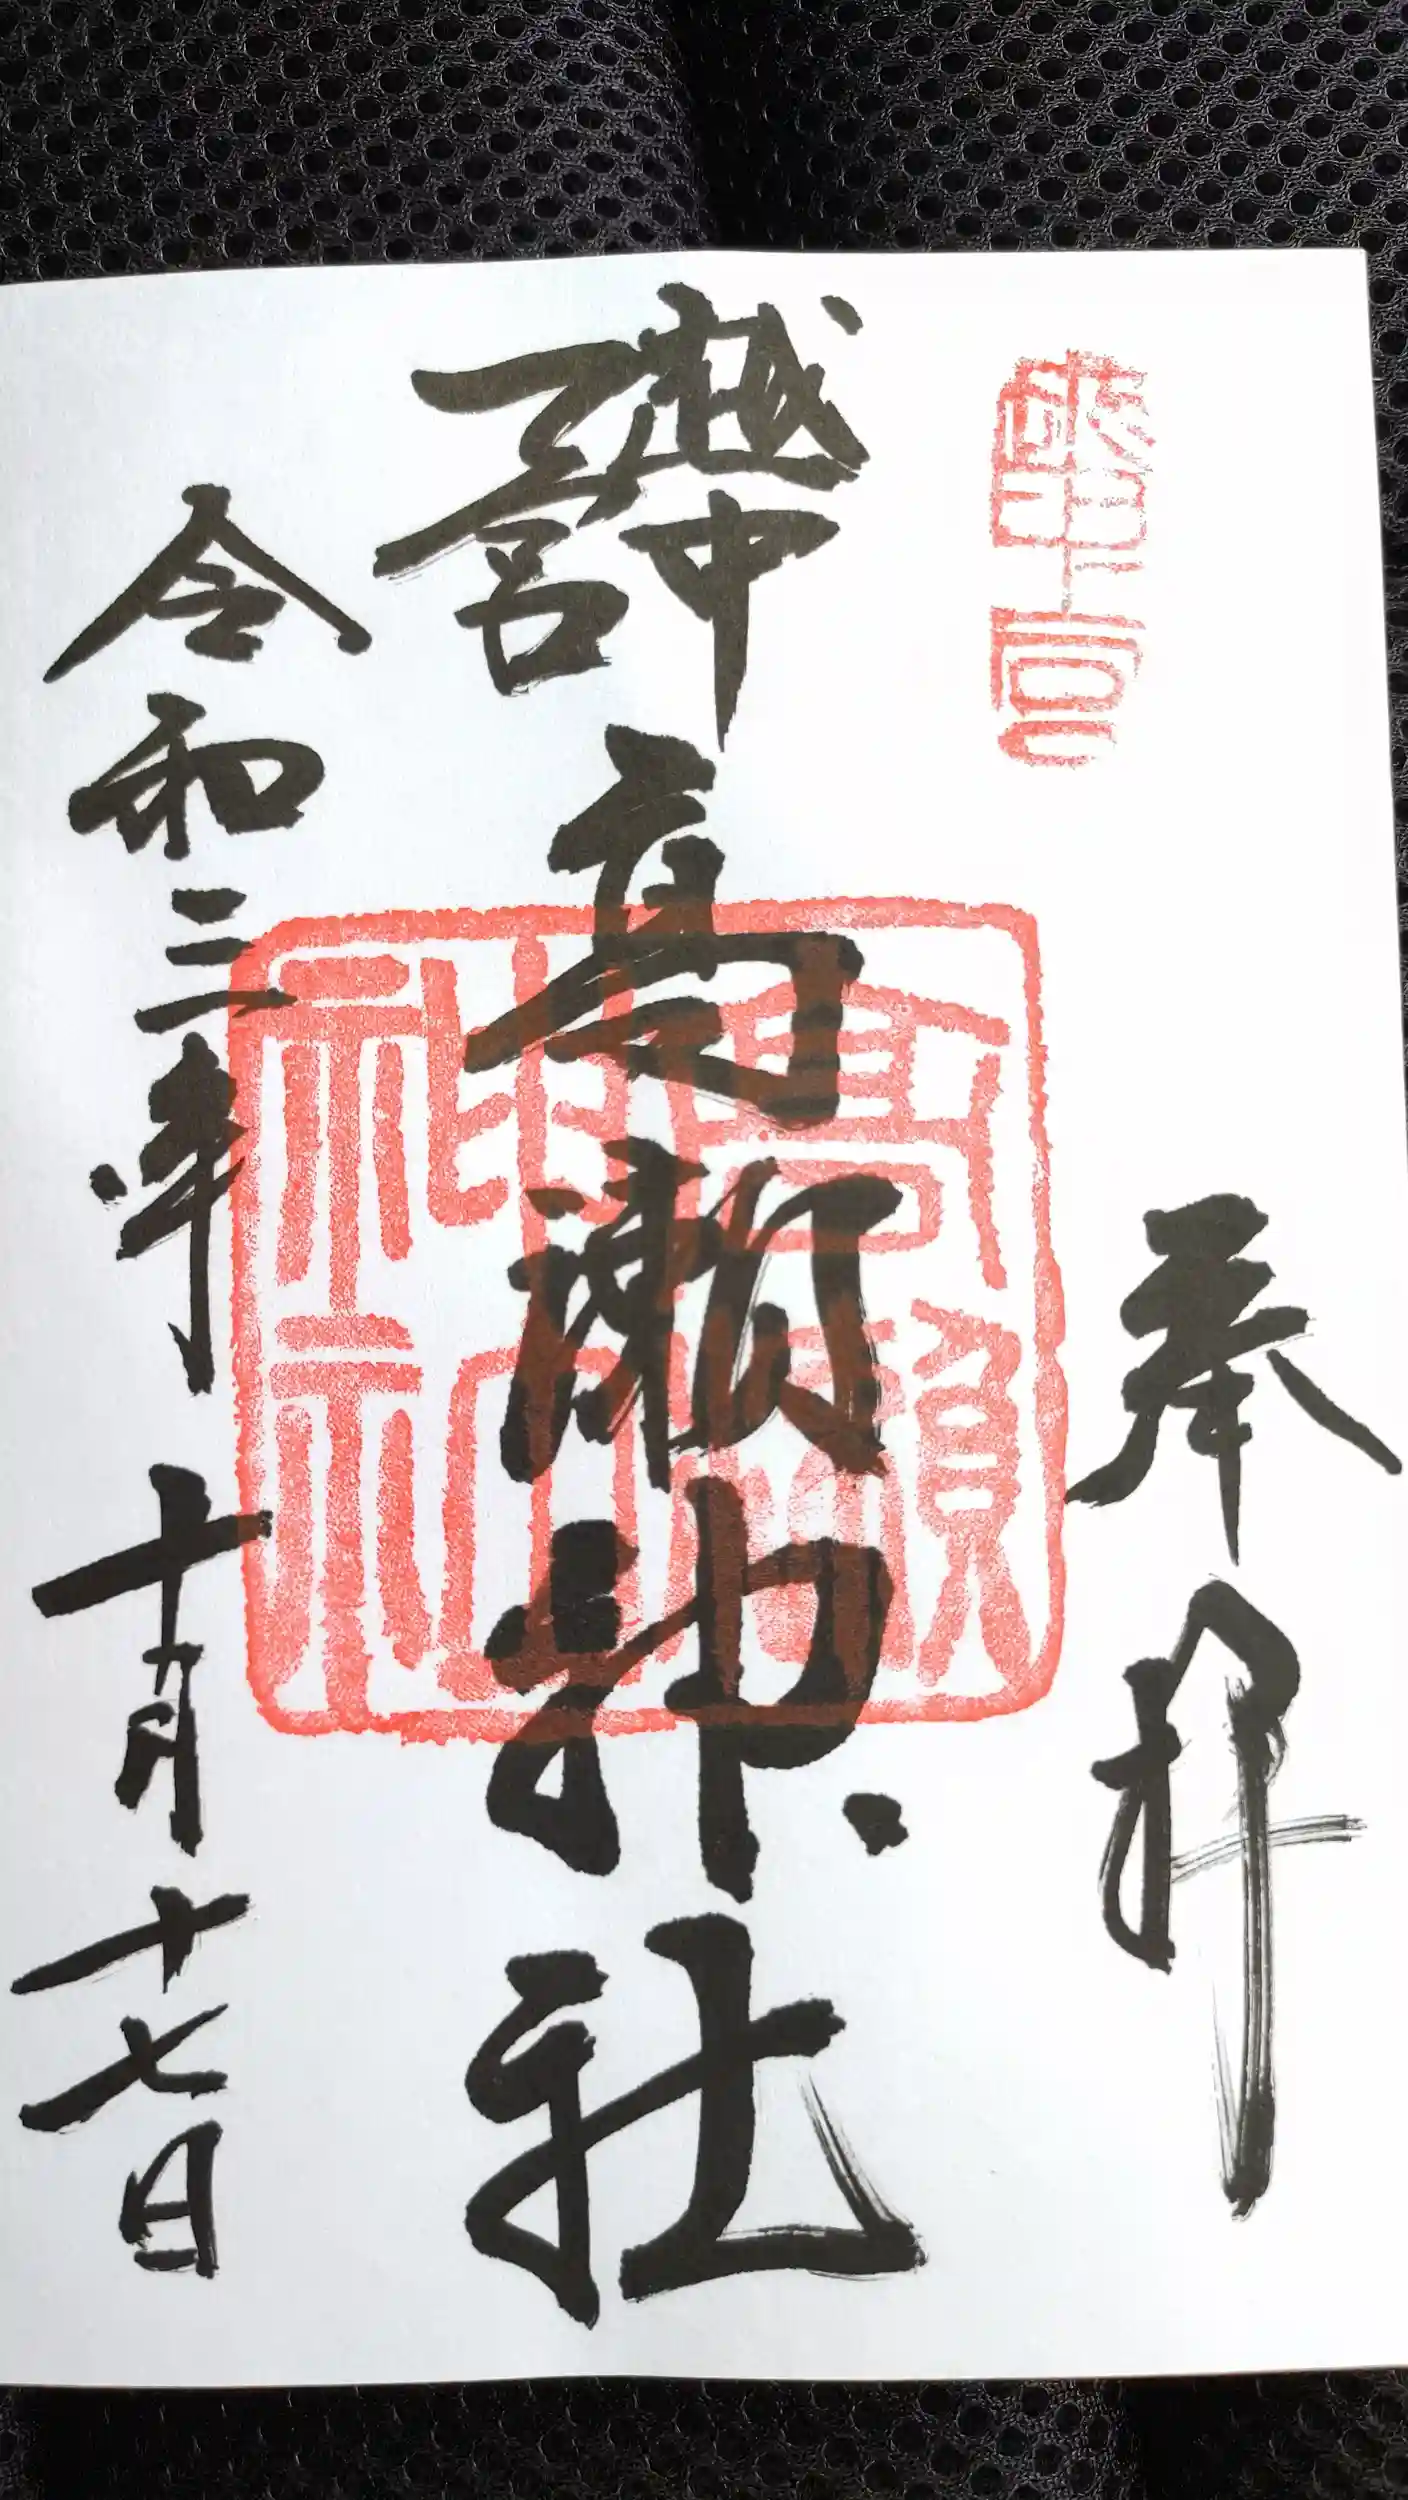 越中一宮
奉拝
越中
一宮
高瀬神社
高瀬
神社
令和三年 十月十七日